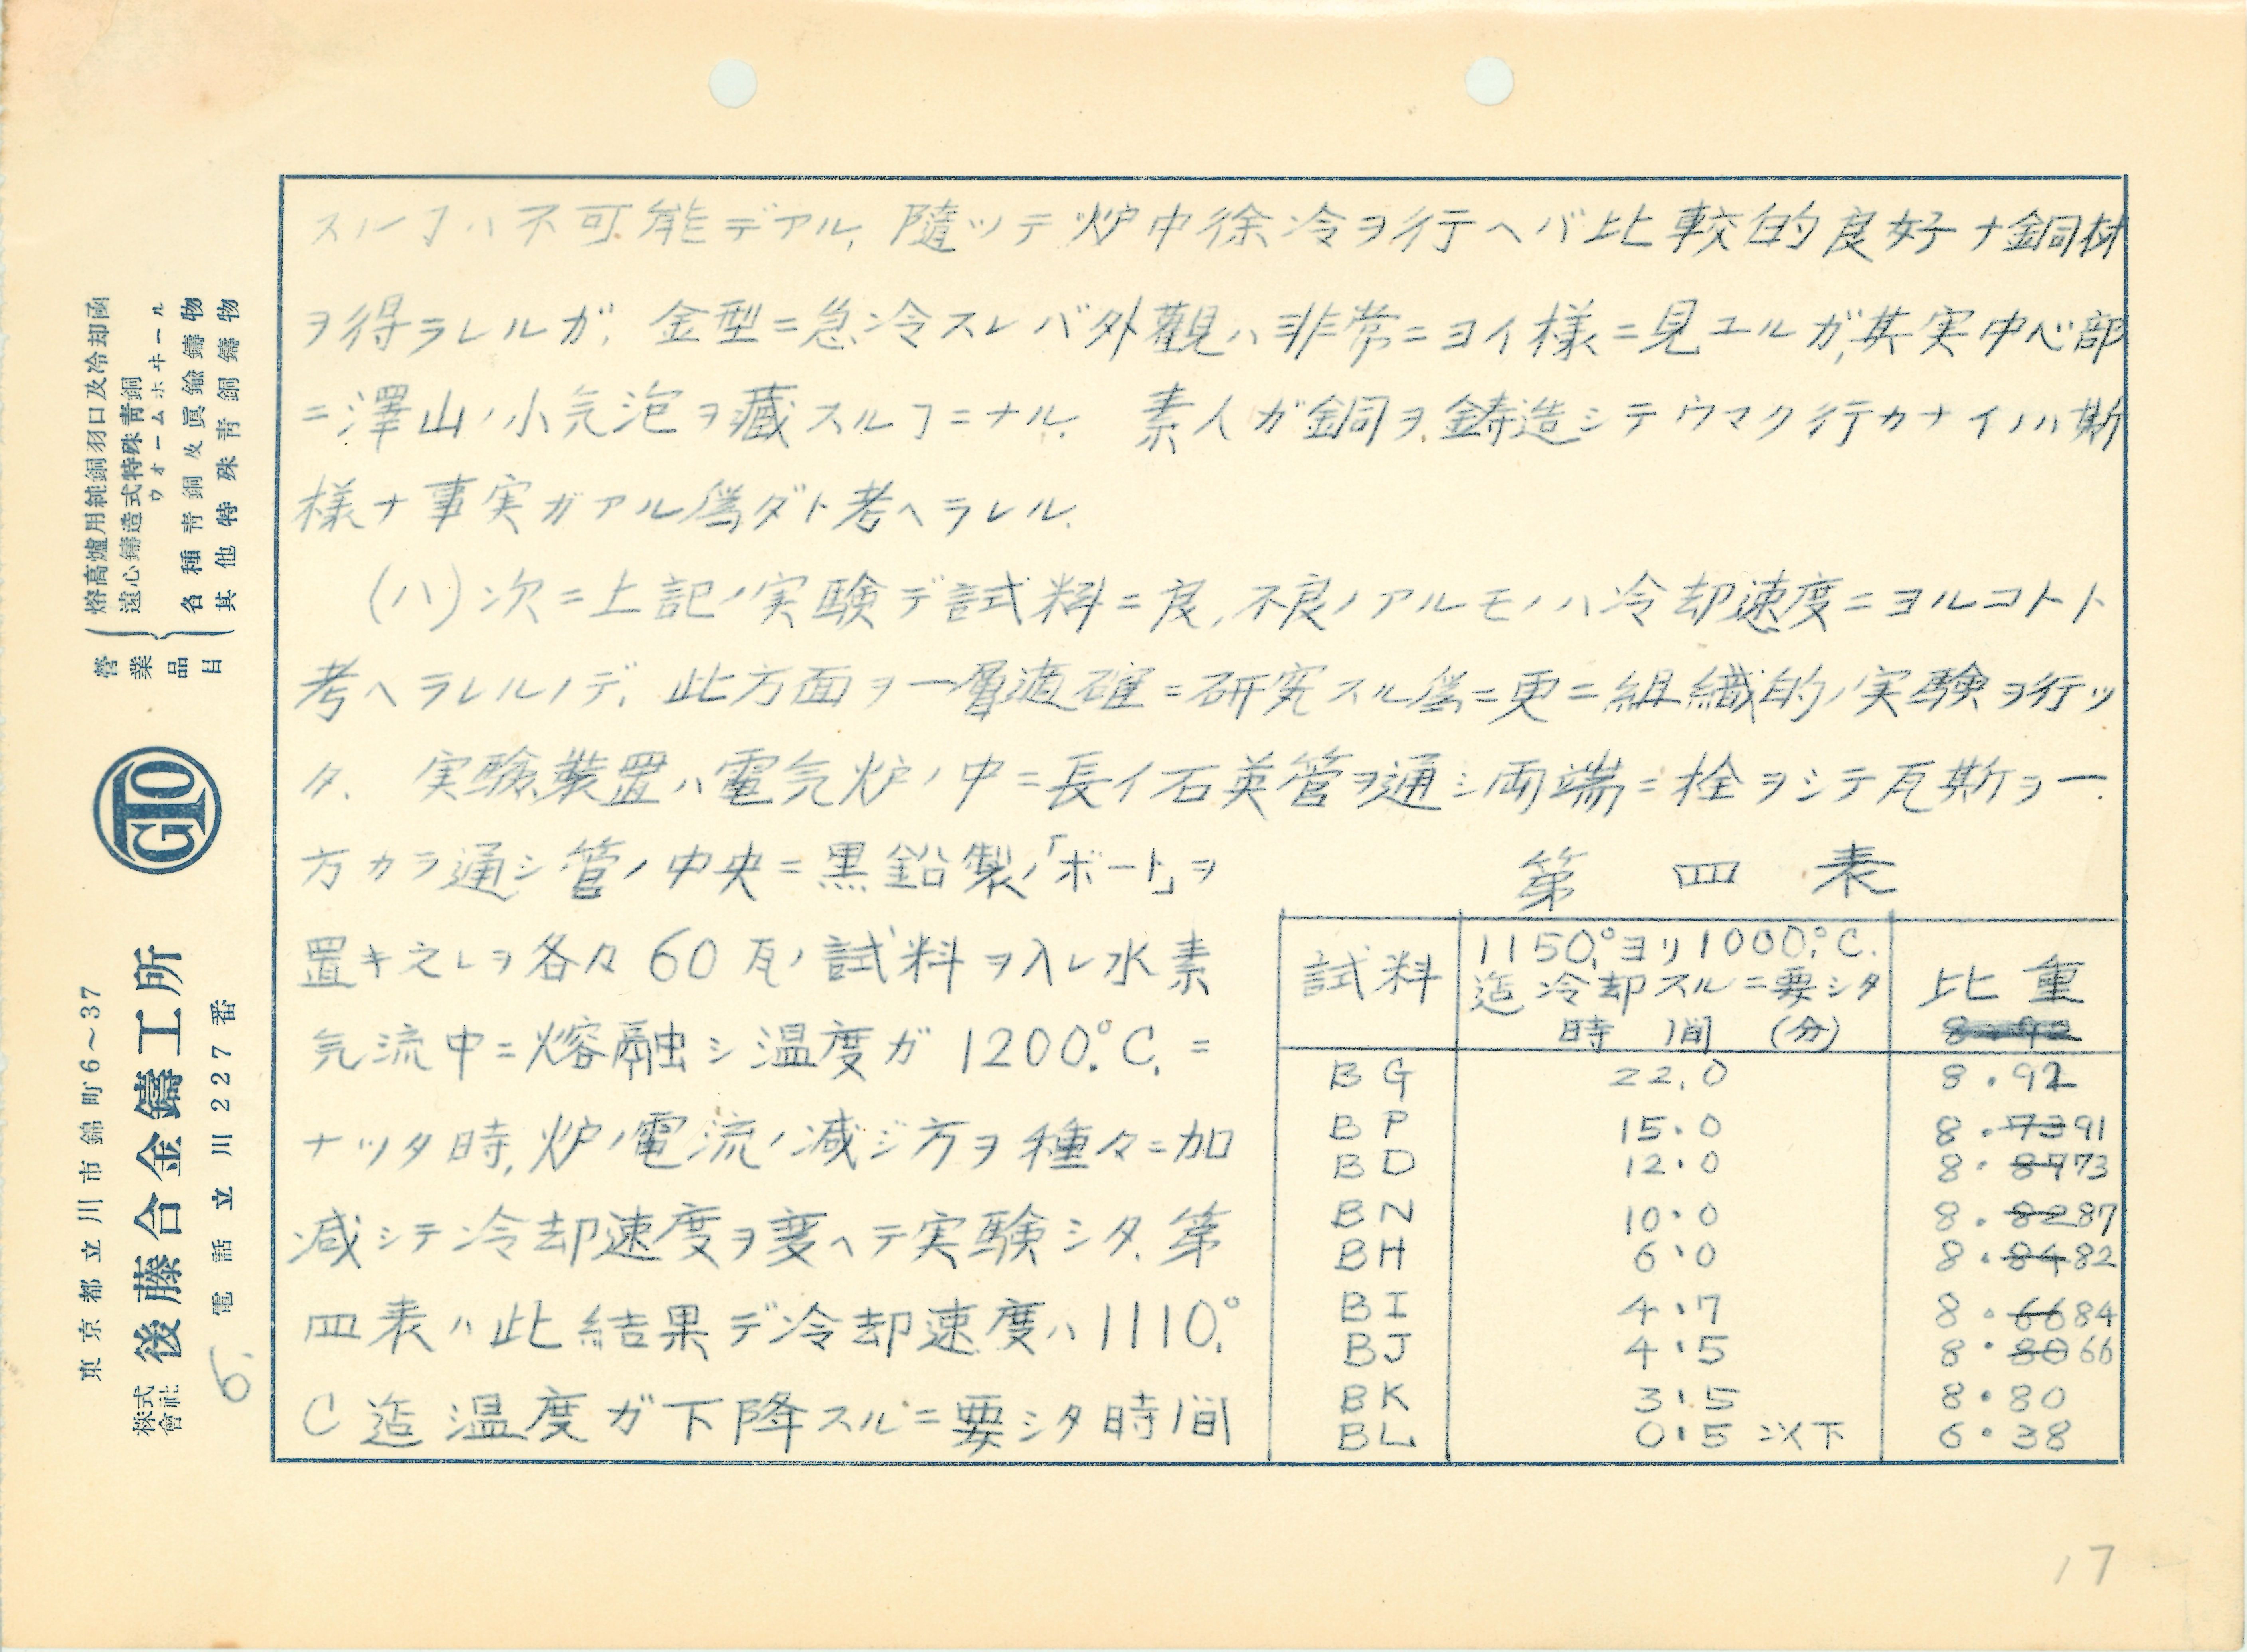 スルヿハ不可能デアル, 隨ッテ炉中徐冷ヲ行ヘバ比較的良好ナ銅材
ヲ得ラレルガ, 金型ニ急冷スレバ外觀ハ非常ニヨイ様ニ見エルガ,其実中心部
ニ澤山ノ小気泡ヲ藏スルヿニナル. 素人ガ銅ヲ鋳造シテウマク行カナイノハ斯
様ナ事実ガアル為ダト考ヘラレル.
(ハ)次ニ上記ノ実験デ試料ニ良,不良ノアルモノハ冷却速度ニヨルコトト
考ヘラレルノデ, 此方面ヲ一層適確ニ研究スル為ニ更ニ組織的ノ実験ヲ行ッ
タ. 実験裝置ハ電気炉ノ中ニ長イ石英管ヲ通シ両端ニ栓ヲシテ瓦斯ヲ一
方カラ通シ管ノ中央ニ黒鉛製ノ「ボート」ヲ
置キ之レヲ各々60瓦ノ試料ヲ入レ水素
気流中ニ熔融シ温度ガ1200.°C.ニ
ナッタ時,炉ノ電流ノ減ジ方ヲ種々ニ加
减シテ冷却速度ヲ変ヘテ実験シタ.第
四表ハ此結果デ冷却速度ハ1110.°
C迄温度ガ下降スルニ要シタ時間
第四表
試料 1150.°ヨリ1000.°C.迄冷却スルニ要シタ時間(分) 比重
8.92
BG 22.0 8.92
BP 15.0 8.7391
BD 12.0 8.8773
BN 10.0 8.8287
BH 6.0 8.8482
BI 4.7 8.6684
BJ 4.5 8.8066
BK 3.5 8.80
BL 0.5以下 6.38
17
營業品目
熔高爐用純銅羽口及冷却函
遠心鑄造式特殊青銅
ウォームホヰール
各種青銅及眞鍮鑄物
其他特殊青銅鑄物
GTO
東京都立川市錦町6~37
株式會社 後藤合金鑄工所
電話立川227番
5.